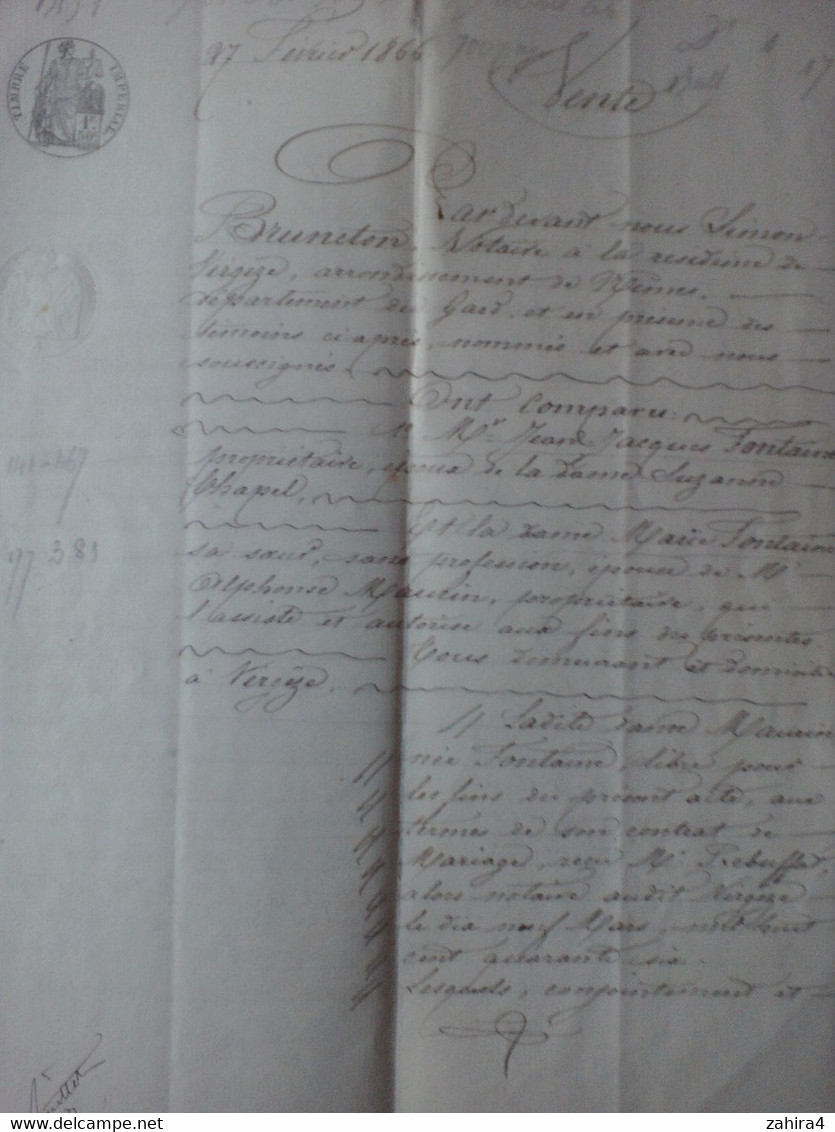 27 Février 1866
Vente
TIMBRE IMPERIAL
1F
50c
Pardevant nous Simon
Bruneton, Notaire à la résidence de
Vergèze, arrondissement de Nîmes,
département du Gard, et en présence des
témoins ci après, nommés et avec nous
soussignés.
Ont Comparu:
1° Mr. Jean Jacques Fontaine
propriétaire, époux de la Dame Suzanne
Chapel,
Et la Dame Marie Fontaine
sa sœur, sans profession, épouse de Mr
Alphonse Maurin, propriétaire, qui
l'assiste et autorise aux fins des présentes
Tous demeurant et domiciliés
à Vergèze.
Ladite Dame Maurin
née Fontaine, libre pour
les fins du présent acte, aux
termes de son contrat de
Mariage, reçu Me. Rebuffat,
alors notaire audit Vergèze
le dix neuf Mars, mil huit
cent quarante six.
Lesquels, conjointement et
77 381
zahira4